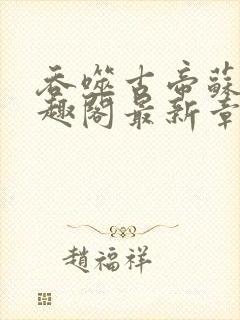 吞噬古帝蘇
趣閣最新章
趙福祥